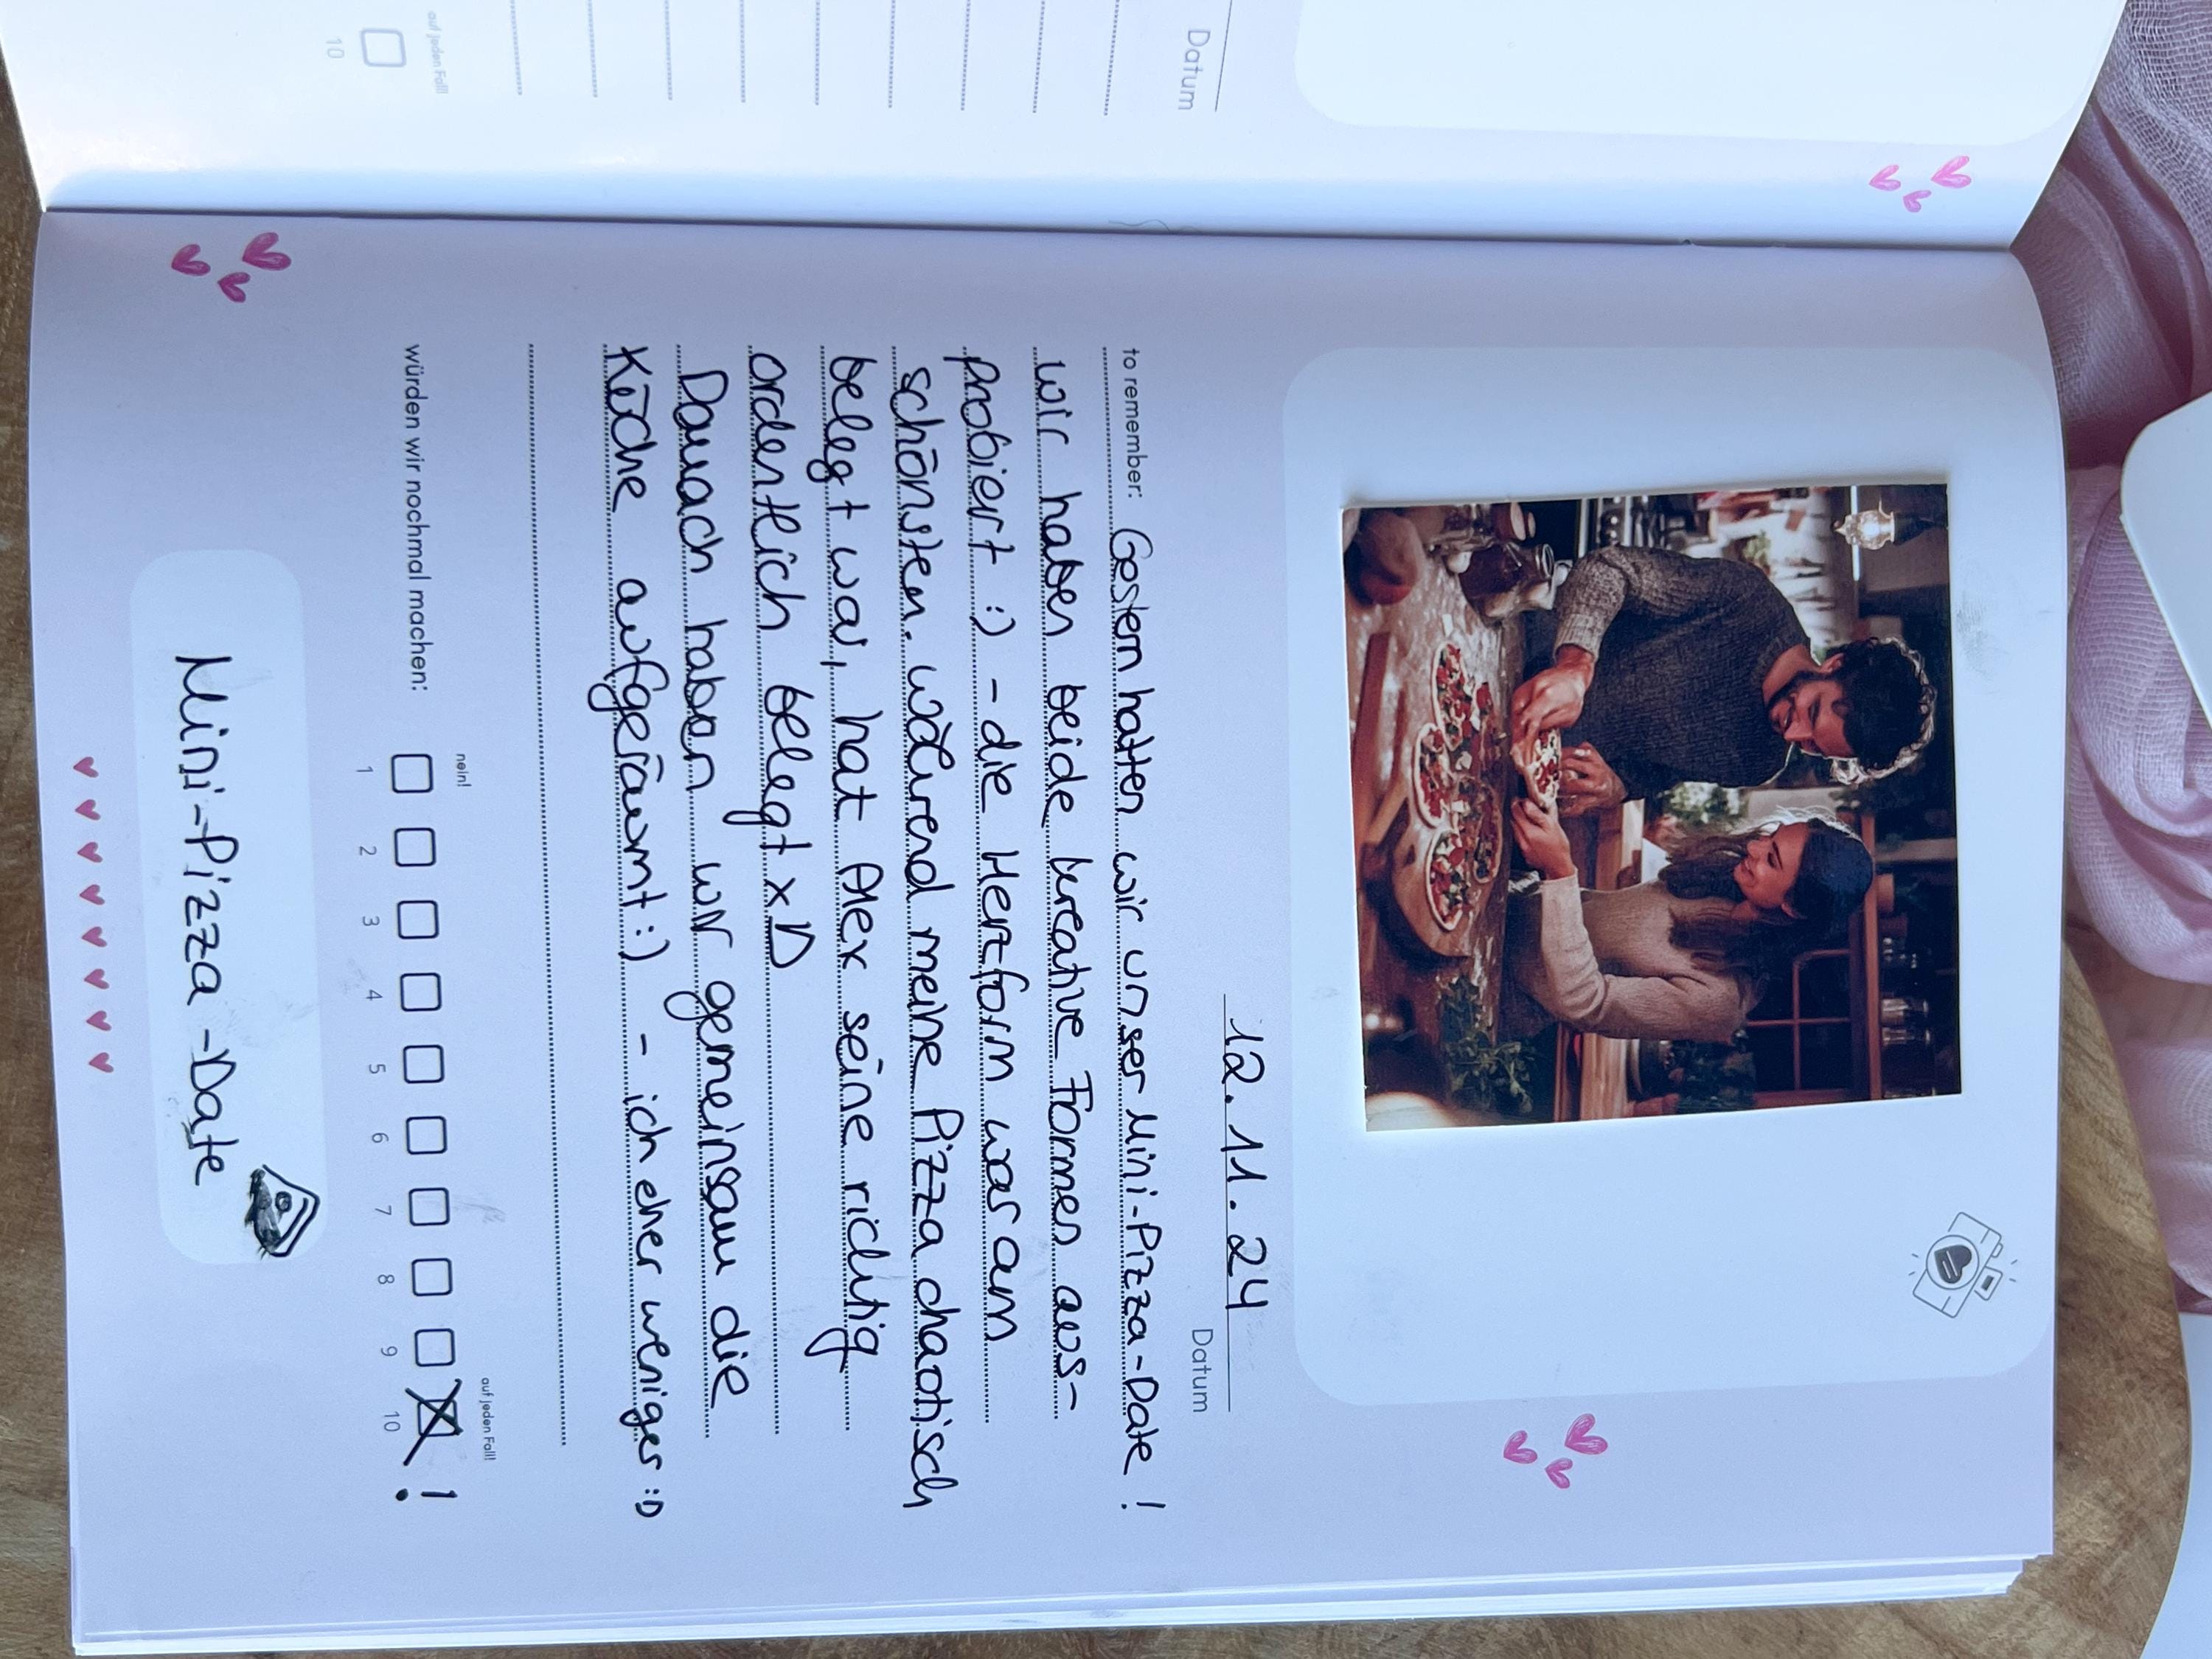 12.11.24
Datum
to remember: Gestern hatten wir unser Mini-Pizza-Date!
wir haben beide kreative Formen aus-
probiert :) - die Herzform war am
schönsten. während meine Pizza chaotisch
belegt war, hat Alex seine richtig
ordentlich belegt xD
Danach haben wir gemeinsam die
Küche aufgeräumt :) - ich eher weniger :D
würden wir nochmal machen:
nein! auf jeden Fall!
1 2 3 4 5 6 7 8 9 10 !
Mini-Pizza-Date
Datum
auf jeden Fall!
10